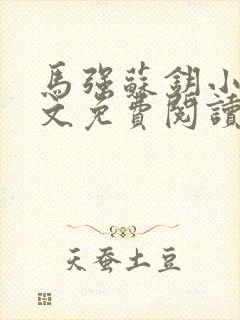 馬強蘇鈅小
文免費閱讀
天蚕土豆